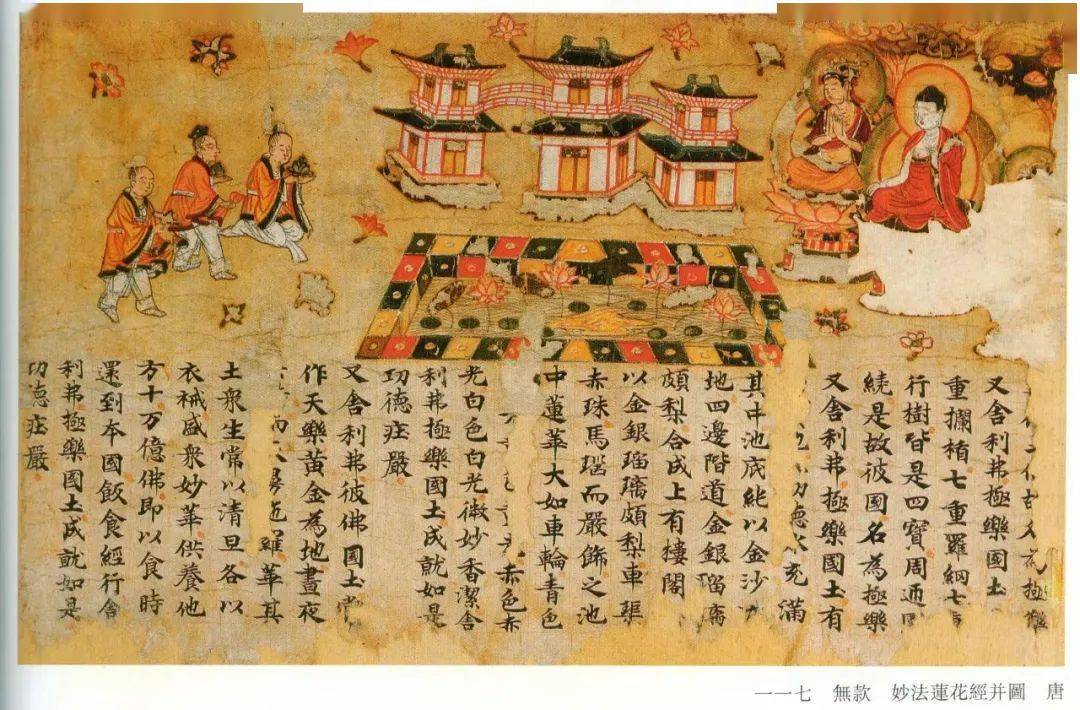 極樂
又舍利弗極樂國土
重攔楯七重羅網七
行樹皆是四寶周迊
繞是故彼國名為極樂
又舍利弗極樂國土有
功德水充滿
其中池底純以金沙
地四邊階道金銀瑠璃
頗梨合成上有樓閣
以金銀瑠璃頗梨車𤦲
赤珠馬瑙而嚴飾之池
中蓮華大如車輪青色
赤色赤
光白色白光微妙香潔舍
利弗極樂國土成就如是
功德莊嚴
又舍利弗彼佛國土常
作天樂黃金為地晝夜
羅華其
土衆生常以清旦各以
衣裓盛衆妙華供養他
方十万億佛即以食時
還到本國飯食經行舍
利弗極樂國土成就如是
功德莊嚴
一一七　無款　妙法蓮花經并圖　唐